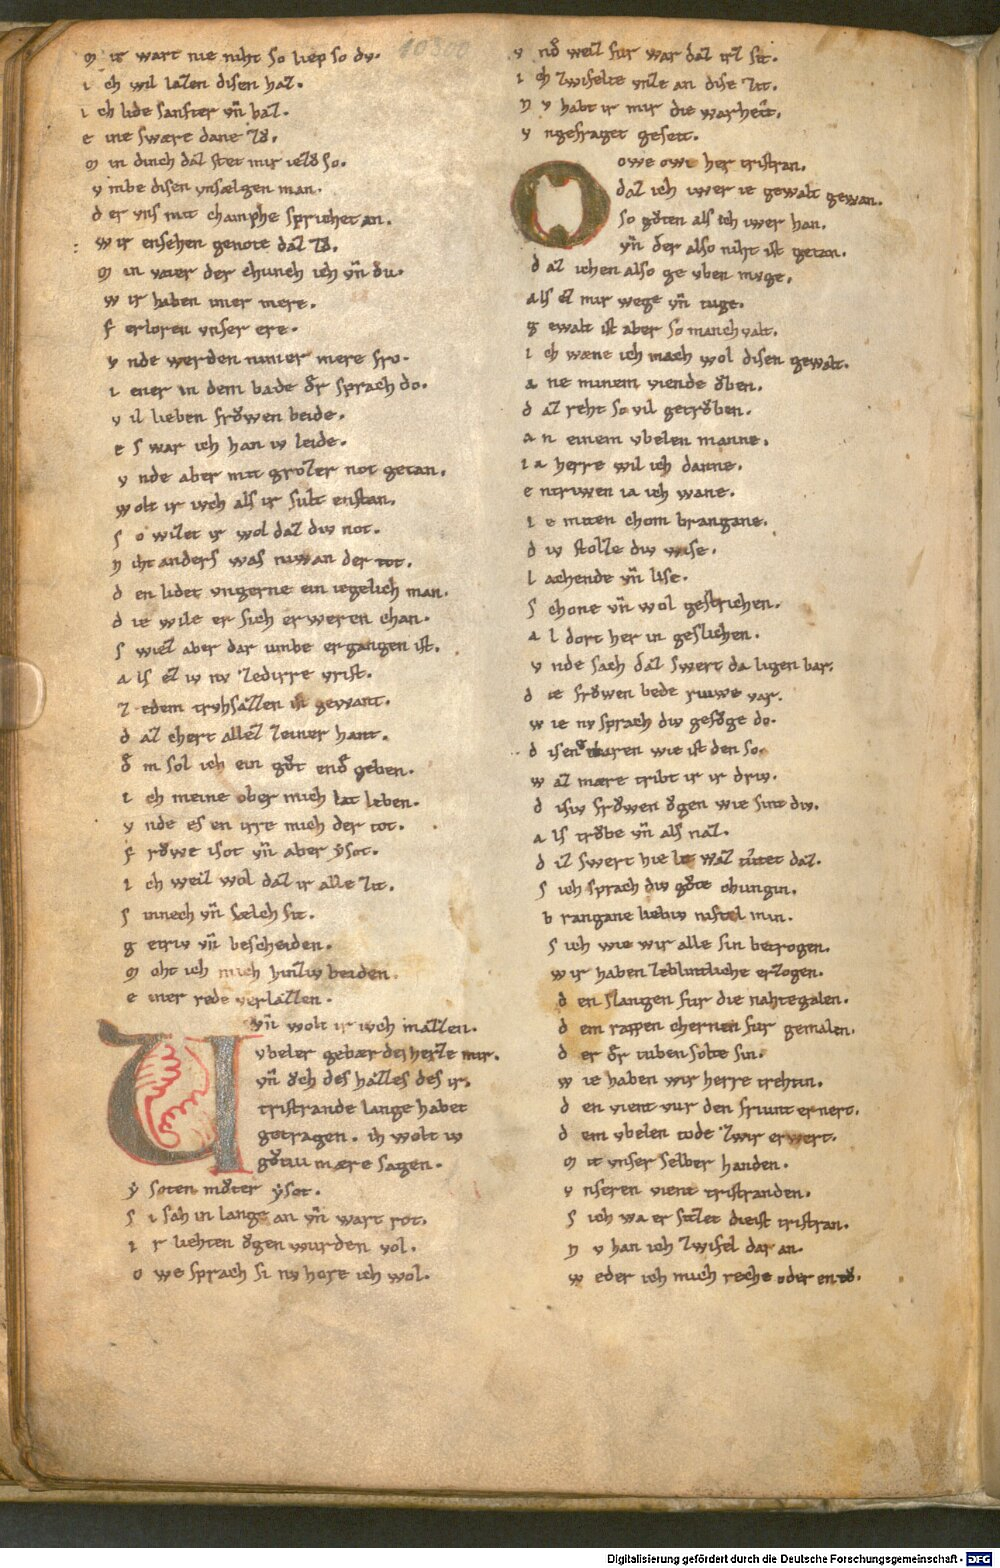 10300
m ir wart nie niht so liep so dv.
i ch wil lazen disen haz.
i ch lide sanfter vn̄ baz.
e ine swære dane zo̊.
m in dinch daz stet mir iezo̊ so.
v mbe disen vnsælgen man.
d er vns mit champhe sprichet an.
w ir ensehen genote daz zo̊.
m in vater der chunch ich vn̄ du.
w ir haben imer mere.
f erloren vnser ere.
v nde werden nimer mere fro.
i ener in dem bade o̊r sprach do.
v il lieben fro̊wen beide.
e s war ich han iv leide.
v nde aber mit grozer not getan.
w olt ir iuch als ir sult enstan.
s o wizet ir wol daz div not.
n iht anders was niuwan der tot.
d en lidet vngerne ein iegelich man.
d ie wile er sich erweren chan.
s wiez aber dar umbe ergangen ist.
a ls ez iv nv zedirre vrist.
z edem truhsæzzen ist gewant.
d az chert allez zeiner hant.
o̊ m sol ich ein go̊t ende geben.
i ch meine ober mich lat leben.
v nde es en irre mich der tot.
f ro̊we isot vn̄ aber ẏsot.
i ch weiz wol daz ir alle zit.
s innech vn̄ sælch sit.
g etriv vn̄ bescheiden.
m oht ich mich hinziv beiden.
e iner rede verlazzen.
U vn̄ wolt ir iuch mazzen.
vbeler gebærde herze mir.
vn̄ o̊ch des hazzes des ir.
tristrande lange habet
getragen. ih wolt iv
go̊tiu mære sagen.
ẏ soten mo̊ter ẏsot.
s i sah in lange an vn̄ wart rot.
i r liehten o̊gen wurden vol.
o we sprach si nv hore ich wol.
v nd̄ weiz fur war daz irz sit.
i ch zwifelte vnze an dise zit.
n v habt ir mir die warheit.
v ngefraget geseit.
O owe owe her tristran.
daz ich iwer ie gewalt gewan.
so go̊ten als ich iwer han.
vn̄ der also niht ist getan.
d az ichen also ge vben muge.
als ez mir wege vn̄ tuge.
g ewalt ist aber so manchvalt.
i ch wæne ich mach wol disen gewalt.
a ne minem viende o̊ben.
d az reht so vil getro̊ben.
a n einem vbelen manne.
i a herre wil ich danne.
e ntriwen ia ich wane.
i e mitten chom brangane.
d iv stolze div wise.
l achende vn̄ lise.
s chone vn̄ wol gestrichen.
a l dort her in geslichen.
v nde sach daz swert da ligen bar.
d ie fro̊wen bede riuwe var.
w ie nv sprach div gefo̊ge do.
d isen gebaren wie ist den so.
w az mære tribt ir ir driv.
d isiv fro̊wen o̊gen wie sint div.
a ls tro̊be vn̄ als naz.
d iz swert hie lit waz tiutet daz.
s ich sprach div go̊te chungin.
b rangane liebiv niftel min.
s ich wie wir alle sin betrogen.
wir haben zeblintliche erzogen.
d en slangen fur die nahtegalen.
d em rappen chernen fur gemalen.
d er o̊r tuben solte sin.
w ie haben wir herre trehtin.
d en vient vur den friunt ernert.
d em vbelen tode zwir erwert.
m it vnser selber handen.
v nseren vient tristranden.
s ich wa er sitzet dieist tristran.
n v han ich zwifel dar an.
w eder ich mich reche oder en to̊.
Digitalisierung gefördert durch die Deutsche Forschungsgemeinschaft - DFG